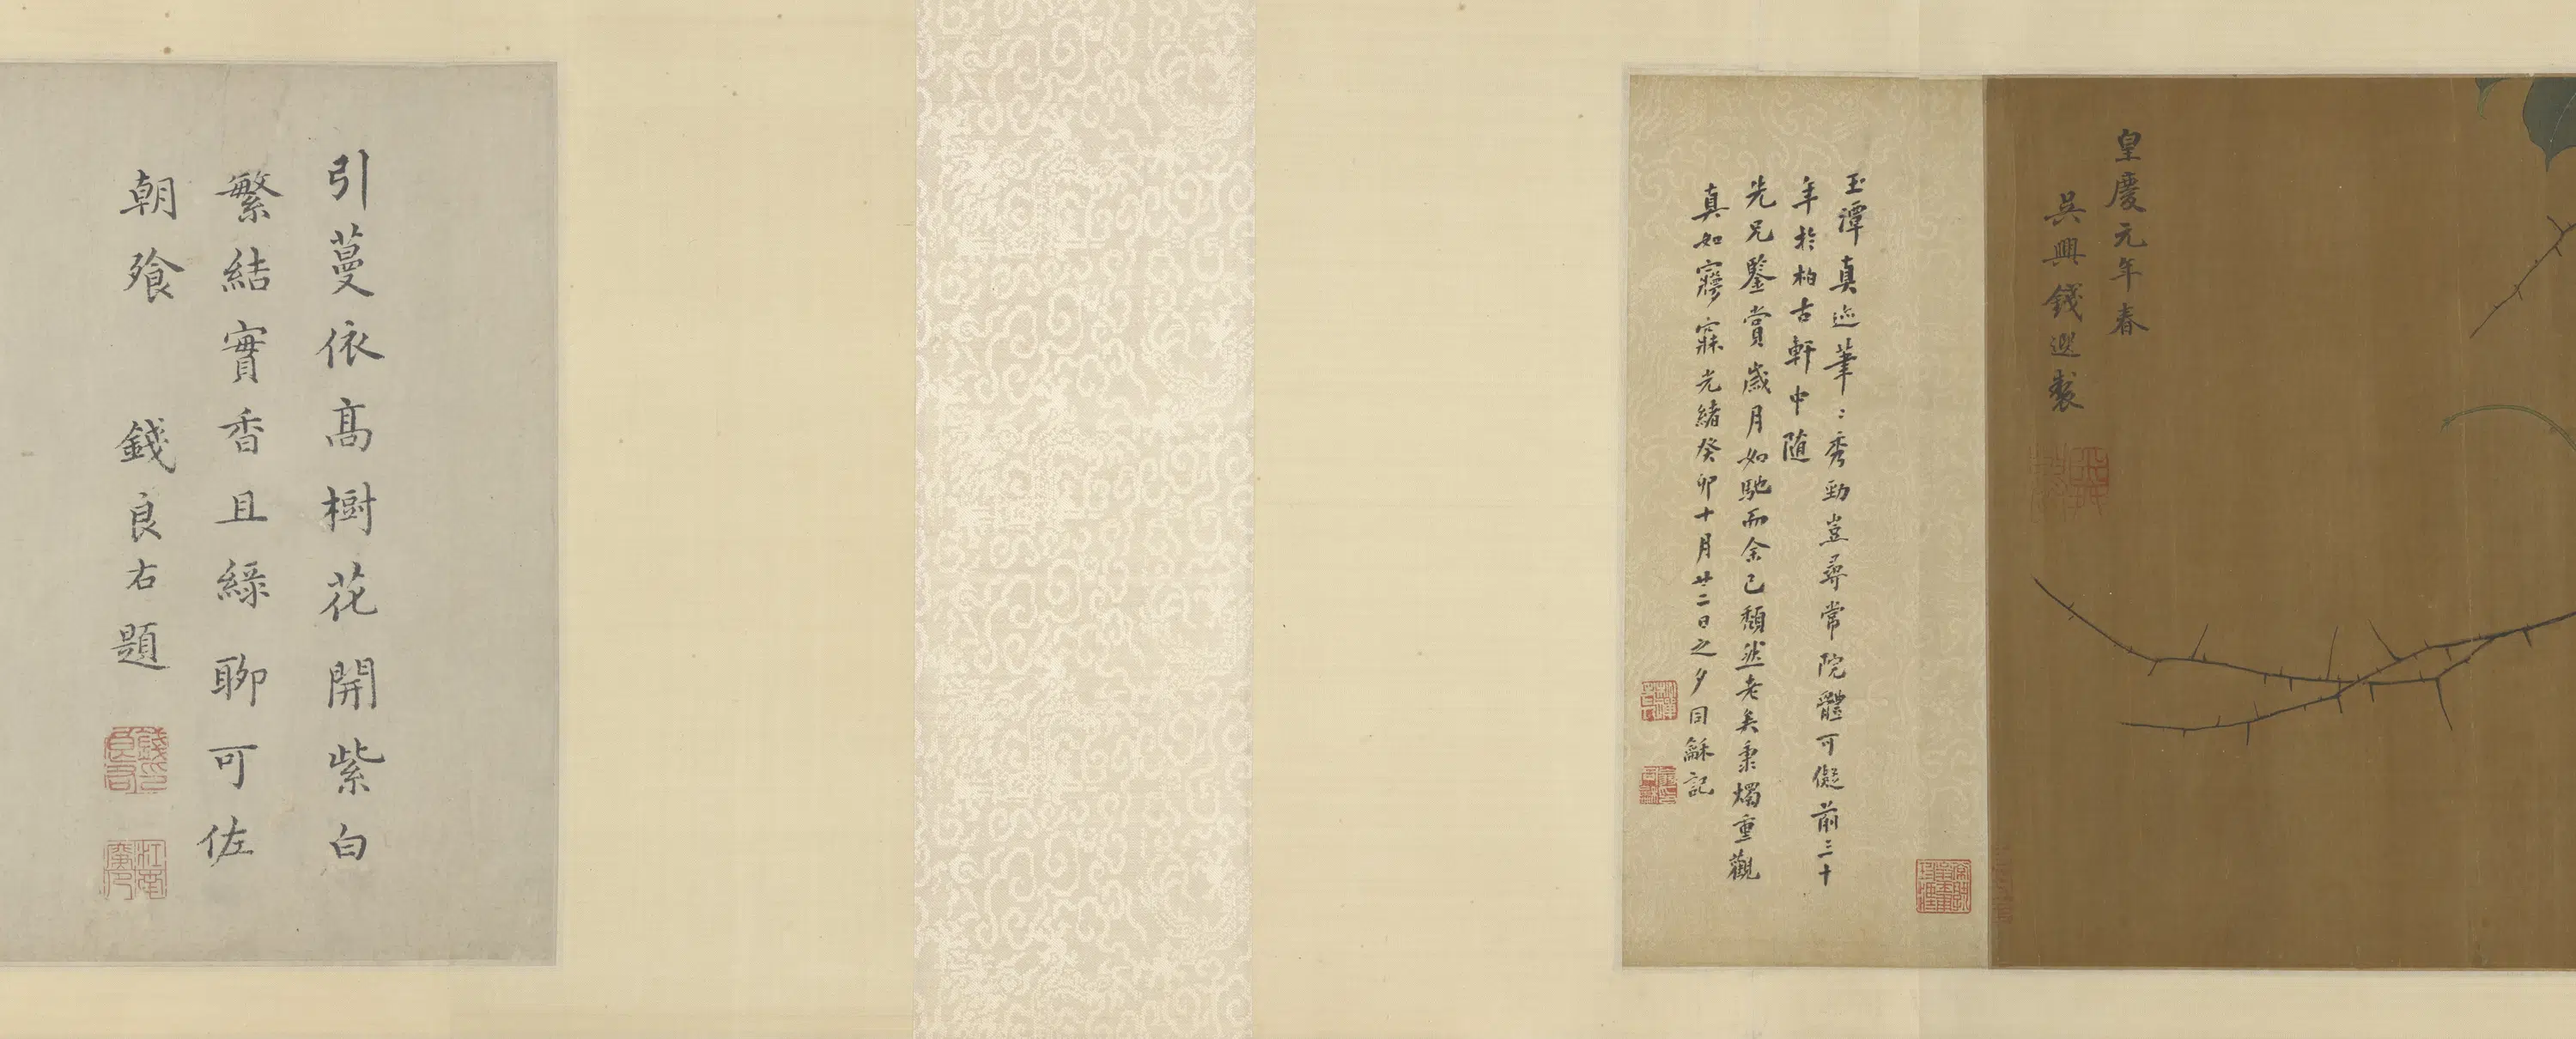 皇慶元年春
吳興錢選製
玉潭真迹筆〻秀勁豈尋常院體可儗前三十
年於柏古軒中随
先兄鑒賞歲月如馳而余已頹然老矣秉燭重觀
真如寤寐光緒癸卯十月廿二日之夕同龢記
引蔓依高樹花開紫白
繁結實香且綠聊可佐
朝飧 錢良右題